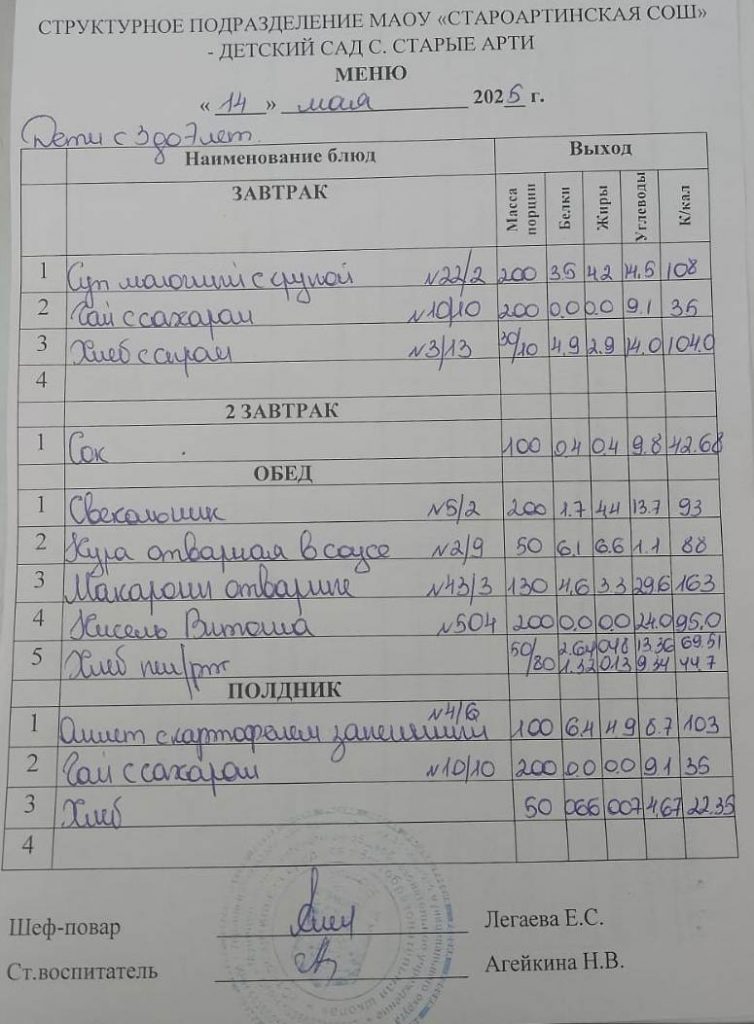 СТРУКТУРНОЕ ПОДРАЗДЕЛЕНИЕ МАОУ «СТАРОАРТИНСКАЯ СОШ»
- ДЕТСКИЙ САД С. СТАРЫЕ АРТИ
МЕНЮ
« 14 » мая 2025 г.
Дети с 3 до 7 лет.
Наименование блюд Выход
ЗАВТРАК Масса порции Белки Жиры Углеводы К/кал
1 Суп молочный с крупой №22/2 200 3.5 4.2 14.5 108
2 Чай с сахаром №10/10 200 0.0 0.0 9.1 35
3 Хлеб с сыром №3/13 30/10 4.9 2.9 14.0 104.0
4
2 ЗАВТРАК
1 Сок 100 0.4 0.4 9.8 42.68
ОБЕД
1 Свекольник №5/2 200 1.7 4.4 13.7 93
2 Кура отварная в соусе №2/9 50 6.1 6.6 1.1 88
3 Макароны отварные №43/3 130 4.6 3.3 29.6 163
4 Кисель Витошка №504 200 0.0 0.0 24.0 95.0
5 Хлеб пш/рж 50/80 2.64 0.48 13.36 69.51
1.32 0.13 9.34 44.7
ПОЛДНИК
1 Омлет с картофелем запеченный №4/6 100 6.4 4.9 6.7 103
2 Чай с сахаром №10/10 200 0.0 0.0 9.1 35
3 Хлеб 50 066 007 4.67 22.35
4
Шеф-повар Легаева Е.С.
Ст.воспитатель Агейкина Н.В.